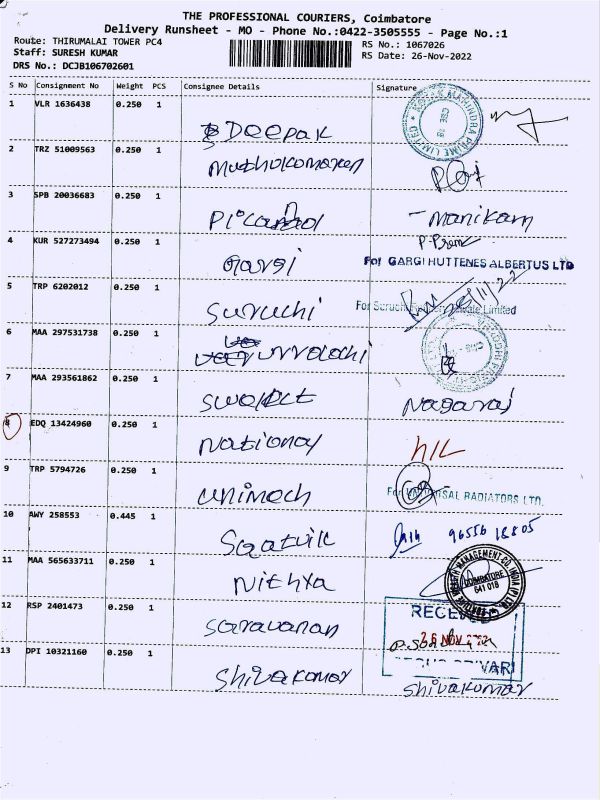 THE PROFESSIONAL COURIERS, Coimbatore
Delivery Runsheet - MO - Phone No.:0422-3505555 - Page No.:1
Route: THIRUMALAI TOWER PC4
RS No.: 1067026
Staff: SURESH KUMAR
RS Date: 26-Nov-2022
DRS No.: DCJB106702601
S No Consignment No Weight PCS Consignee Details Signature
1 VLR 1636438 0.250 1
Deepak
MAHINDRA PRIME LIMITED
2 TRZ 51009563 0.250 1
Muthukomaren
3 SPB 20036683 0.250 1
Manikam
4 KUR 527273494 0.250 1
Gargi
For GARGI HUTTENES ALBERTUS LTD
5 TRP 6202012 0.250 1
Suruchi
For Suruchi Private Limited
26/11/22
6 MAA 297531738 0.250 1
7 MAA 293561862 0.250 1
Nagaraj
8 EDQ 13424960 0.250 1
National
NIL
9 TRP 5794726 0.250 1
Unimech
For UNIVERSAL RADIATORS LTD.
10 AWY 258553 0.445 1
Saatvik
96556 18805
11 MAA 565633711 0.250 1
Nithya
WEALTH MANAGEMENT CO. INDIA (P) LTD
COIMBATORE
641 018
12 RSP 2401473 0.250 1
Saravanan
RECEIVED
26 NOV 2022
13 DPI 10321160 0.250 1
Shivakomar
Shivakomar